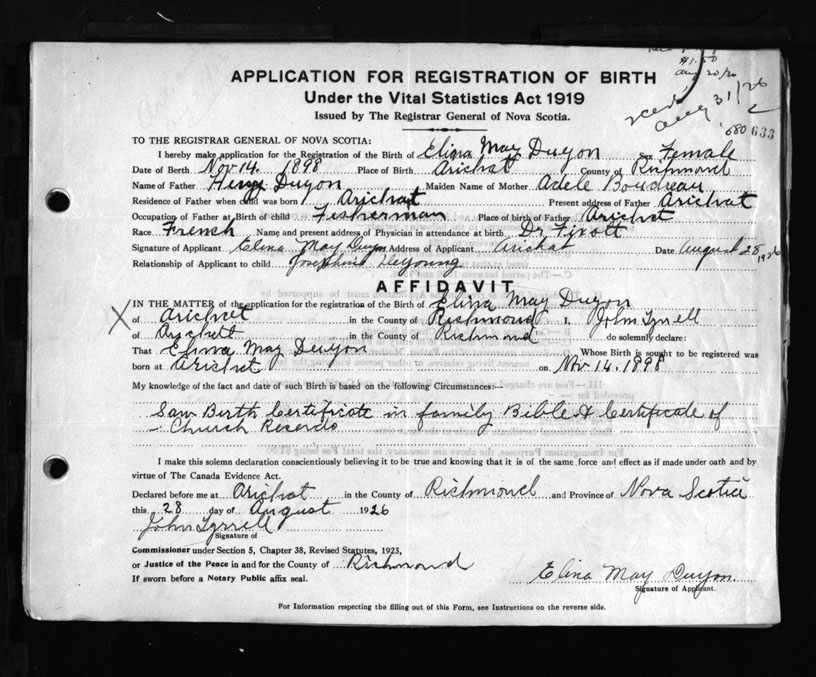 $1.50
Aug 20/26
Aug 31/26
680 633
APPLICATION FOR REGISTRATION OF BIRTH
Under the Vital Statistics Act 1919
Issued by The Registrar General of Nova Scotia.
TO THE REGISTRAR GENERAL OF NOVA SCOTIA:
I hereby make application for the Registration of the Birth of Elina May Duyon Sex Female
Date of Birth Nov 14. 1898 Place of Birth Arichat County of Richmond
Name of Father Henry Duyon Maiden Name of Mother Adele Boudreau
Residence of Father when child was born Arichat Present address of Father Arichat
Occupation of Father at Birth of child Fisherman Place of birth of Father Arichat
Race French Name and present address of Physician in attendance at birth Dr Fixott
Signature of Applicant Elina May Duyon Address of Applicant Arichat Date August 28 1926
Relationship of Applicant to child Josephine DeYoung
AFFIDAVIT
IN THE MATTER of the application for the registration of the Birth of Elina May Duyon
X of Arichat in the County of Richmond I, John Tyrrell
of Arichat in the County of Richmond do solemnly declare:
That Elina May Duyon Whose Birth is sought to be registered was
born at Arichat on Nov 14. 1898
My knowledge of the fact and date of such Birth is based on the following Circumstances:
Saw Birth Certificate in family Bible & Certificate of
– Church Records
I make this solemn declaration conscientiously believing it to be true and knowing that it is of the same force and effect as if made under oath and by
virtue of The Canada Evidence Act.
Declared before me at Arichat in the County of Richmond and Province of Nova Scotia
this 28 day of August 1926
John Tyrrell
Signature of
Commissioner under Section 5, Chapter 38, Revised Statutes, 1923,
or Justice of the Peace in and for the County of Richmond
If sworn before a Notary Public affix seal.
Elina May Duyon
Signature of Applicant.
For Information respecting the filling out of this Form, see Instructions on the reverse side.